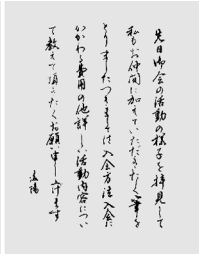 先日御会の活動の様子を拝見して
私もお仲間に加えていただきたく筆を
とりましたつきましては入会方法入会に
かかわる費用の他詳しい活動内容につい
て教えて頂きたくお願い申し上げます